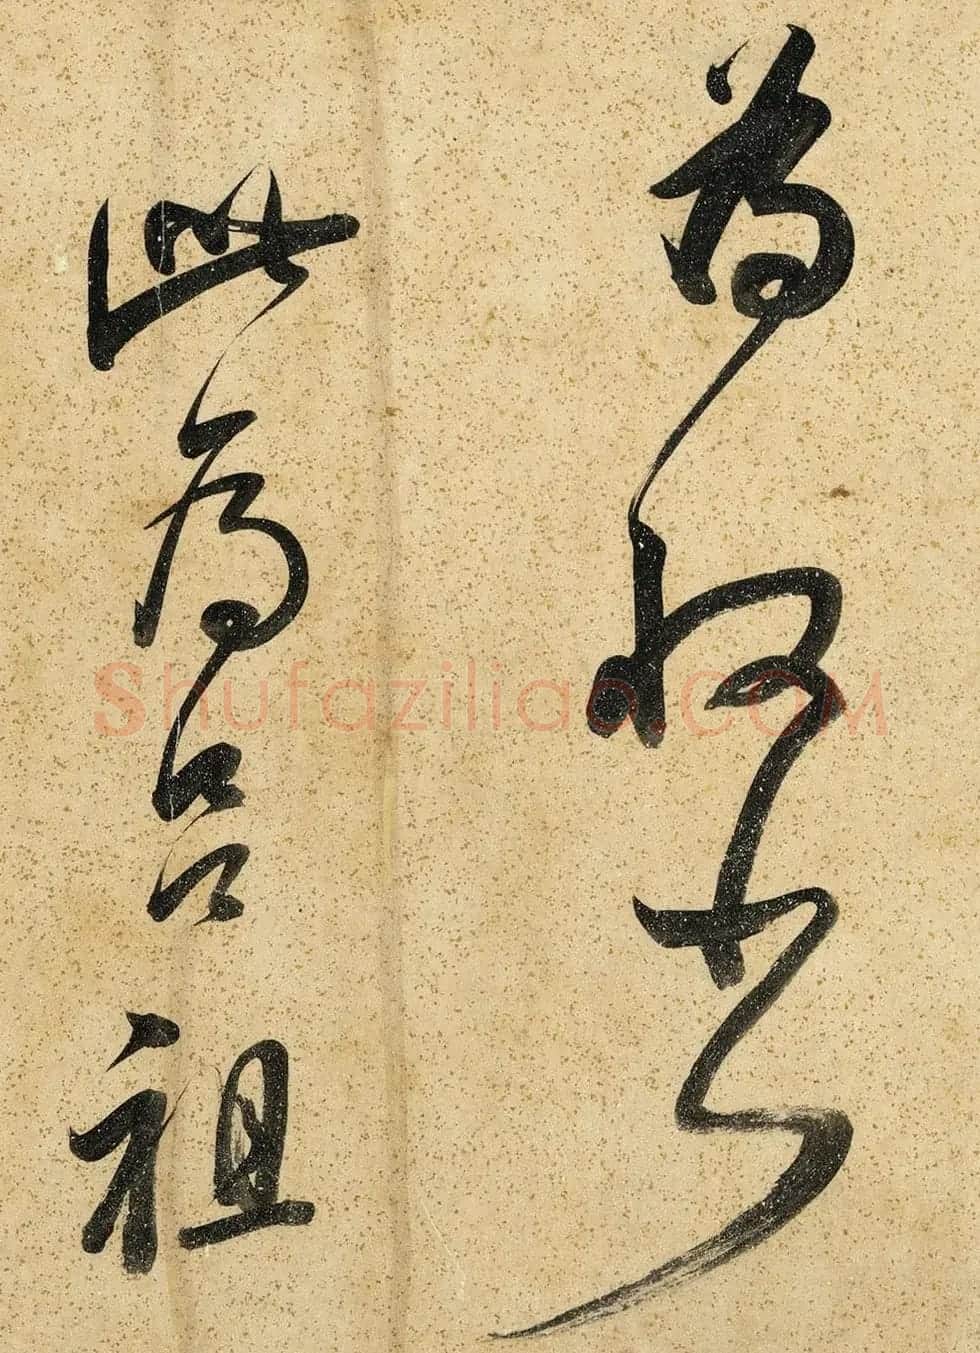 為
此為呂祖
Shufaziliao.COM